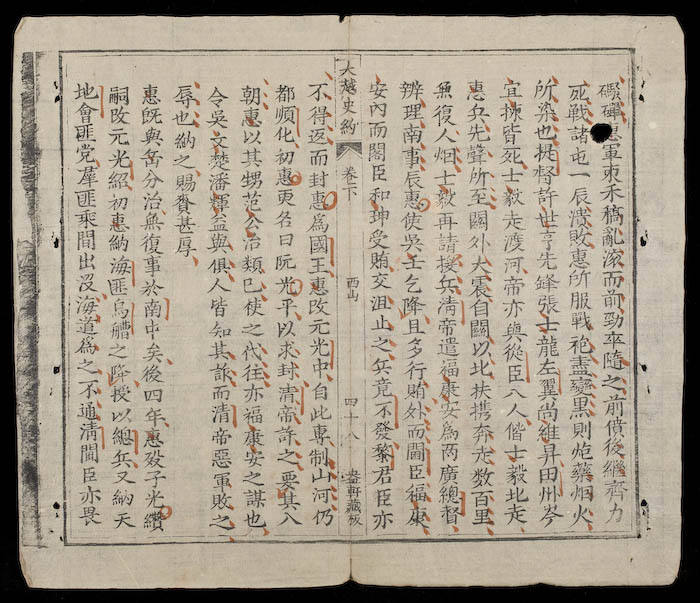 礮碑惠軍束禾稿亂滚而前勁卒隨之前僨後繼齊力
死戰諸屯一辰潰敗惠所服戰袍盡變黑則炮藥烟火
所染也提督許世亨先鋒張士龍左翼尚維昇田州岑
宜棟皆死士毅走渡河帝亦與從臣八人偕士毅北走
惠兵先聲所至關外大震自關以北扶携奔走数百里
無復人烟士毅再請接兵淸帝遣福康安為两廣總督
辨理南事辰惠使吳壬乞降且多行賄外而閫臣福康
安內而閣臣和珅受賄交沮止之兵竟不發黎君臣亦
大越史約
卷下
西山
四十八
𡽫軒藏板
不得返而封惠爲國王惠改元光中自此專制山河仍
都順化初惠更名曰阮光平以求封淸帝許之要其入
朝惠以其甥范公治類已使之代往亦福康安之謀也
令吳文楚潘輝益與俱人皆知其詐而淸帝惡軍敗之
辱也納之賜賚甚厚
惠旣與岳分治無復事於南中矣後四年惠殁子光纘
嗣改元光紹初惠納海匪烏艚之降授以總兵又納天
地會匪党羣匪乘間出没海道爲之不通淸閫臣亦畏